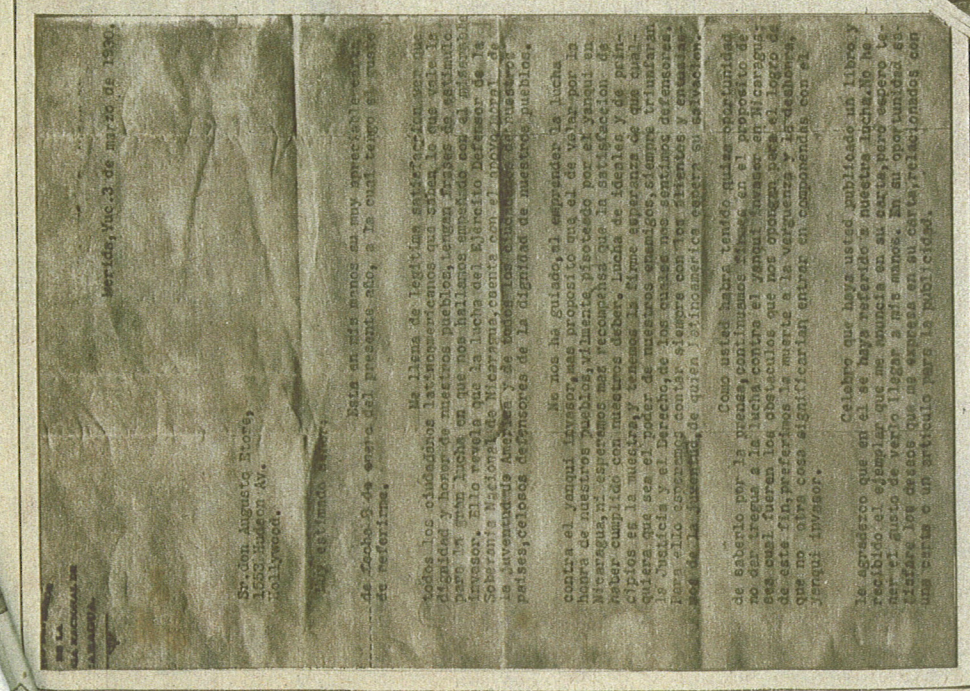 DE LA
Mérida, Yuc. 3 de marzo de 1930.
Sr. don Augusto
1653 Hudson Av.
Hollywood.
Muy estimado señor:
Está en mis manos su muy apreciable carta
de fecha 9 de enero del presente año, a la cual tengo el gusto
de referirme.
Me llena de legítima satisfacción ver que
todos los ciudadanos latinoamericanos que saben lo que vale la
dignidad y honor de nuestros pueblos, tengan frases de estímulo
para la gran lucha en que nos hallamos empeñados con el miserable
invasor. Ello revela que la lucha del Ejército Defensor de la
Soberanía Nacional de Nicaragua, cuenta con el apoyo moral de
la juventud de América y de todos los ciudadanos de nuestros
países, celosos defensores de la dignidad de nuestros pueblos.
No nos ha guiado, al emprender la lucha
contra el yanqui invasor, mas propósito que el de velar por la
honra de nuestros pueblos, vilmente pisoteado por el yanqui en
Nicaragua, ni esperamos mas recompensa que la satisfacción de
haber cumplido con nuestros deber. Lucha de ideales y de prin-
cipios es la nuestra, y tenemos la firme esperanza de que cual-
quiera que sea el poder de nuestros enemigos, siempre triunfaran
la Justicia y el Derecho, de los cuales nos sentimos defensores.
Para ello esperamos contar siempre con los alientos y energías
de la juventud, de quien Latinoamérica espera su salvación.
Como usted habrá tenido quizá oportunidad
de saberlo por la prensa, continuamos firmes en el propósito de
no dar tregua a la lucha contra el yanqui invasor en Nicaragua,
sea cual fueren los obstáculos que nos opongan para el logro de
de este fin, preferimos la muerte a la vergüenza y la deshonra,
que no otra cosa significarían entrar en componendas con el
yanqui invasor.
Celebro que haya usted publicado un libro y
le agradezco que en él se haya referido a nuestra lucha. No he
recibido el ejemplar que me anuncia en su carta, pero espero te-
ner el gusto de verlo llegar a mis manos. En su oportunidad sa-
tisfaré los deseos que me expresa en su carta, relacionados con
una carta o un artículo para la publicidad.